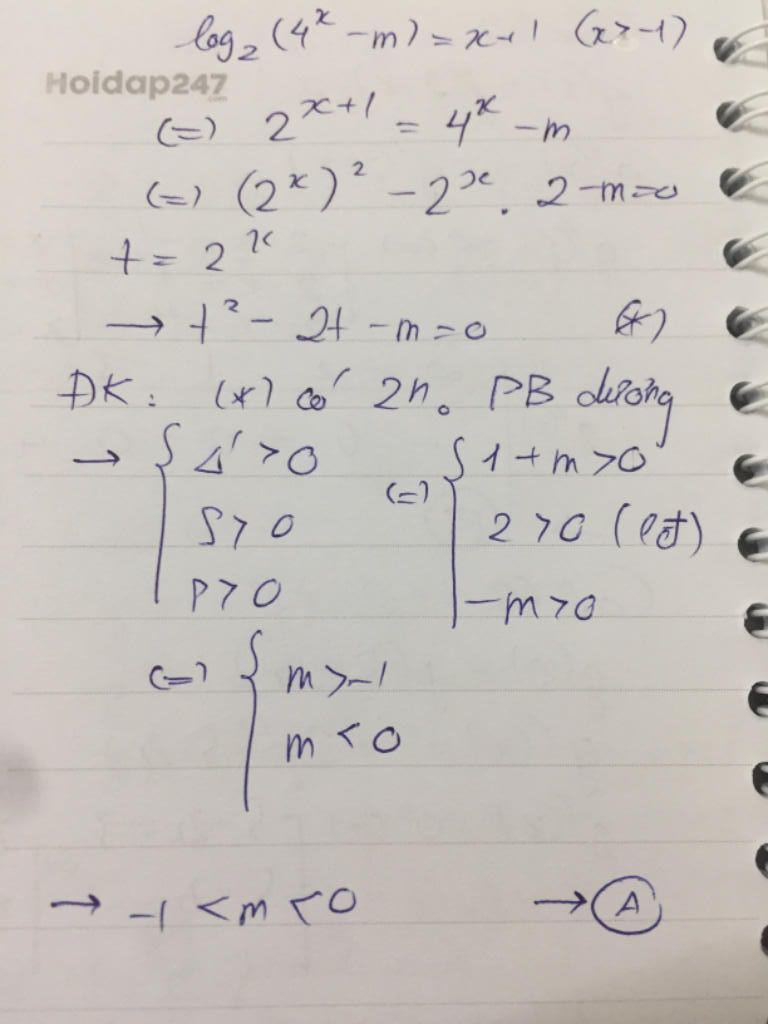 log₂ (4ˣ - m) = x+1 (x > -1)
Hoidap247.com
(=) 2ˣ⁺¹ = 4ˣ - m
(=) (2ˣ)² - 2ˣ. 2 - m = 0
t = 2ˣ
→ t² - 2t - m = 0 (*)
ĐK: (*) có 2n₀ PB dương
→ { Δ' > 0 (=) { 1 + m > 0
S > 0 2 > 0 (lđ)
P > 0 -m > 0
(=) { m > -1
m < 0
→ -1 < m < 0 → A